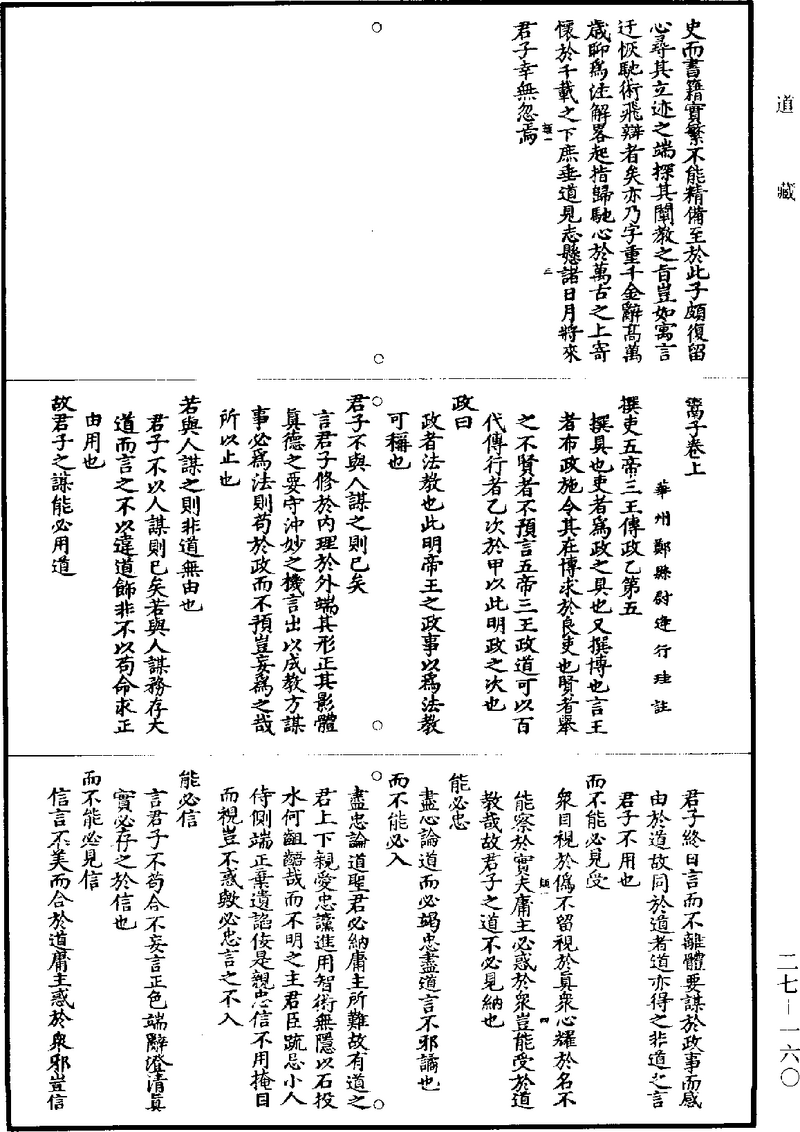 道藏
史而書籍實繁不能精備至於此子頗復留
心尋其立迹之端探其闡教之旨豈如寓言
迂恢馳術飛辯者矣亦乃字重千金辭高萬
歲聊為注解畧起指歸馳心於萬古之上寄
懷於千載之下庶垂道見志懸諸日月將來
君子幸無忽焉
三
鬻子卷上
華州鄭縣尉逄行珪註
撰吏五帝三王傳政乙第五
撰具也吏者為政之具也又撰博也言王
者布政施令其在博求於良吏也賢者舉
之不賢者不預言五帝三王政道可以百
代傳行者乙次於甲以此明政之次也
政曰
政者法教也此明帝王之政事以為法教
可稱也
君子不與人謀之則已矣
言君子修於內理於外端其形正其影體
真德之要守沖妙之機言出以成教方謀
事必為法則苟於政而不預豈妄為之哉
所以止也
若與人謀之則非道無由也
君子不以人謀則已矣若與人謀務存大
道而言之不以違道飾非不以苟命求正
由用也
故君子之謀能必用道
君子終日言而不離體要謀於政事而感
由於道故同於道者道亦得之非道之言
君子不用也
而不能必見受
衆目視於偽不留視於真衆心耀於名不
能察於實夫庸主必惑於衆豈能受於道
教哉故君子之道不必見納也
四
能必忠
盡心論道而必竭忠盡道言不邪謟也
而不能必入
盡忠論道聖君必納庸主所難故有道之
君上下親愛忠讜進用智術無隱以石投
水何齟齬哉而不明之主君臣疏忌小人
侍側端正棄遺諂佞是親忠信不用掩目
而視豈不惑歟必忠言之不入
能必信
言君子不苟合不妄言正色端辭澄清真
實必存之於信也
而不能必見信
信言不美而合於道庸主惑於衆邪豈信
二七－一六〇